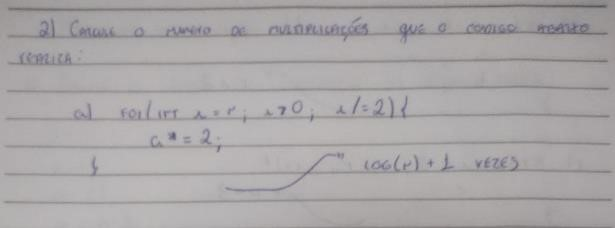 2) CALCULE O NÚMERO DE MULTIPLICAÇÕES QUE O CÓDIGO ABAIXO
REALIZA:
a) FOR(INT i = n; i > 0; i /= 2) {
a *= 2;
}
LOG(n) + 1 VEZES